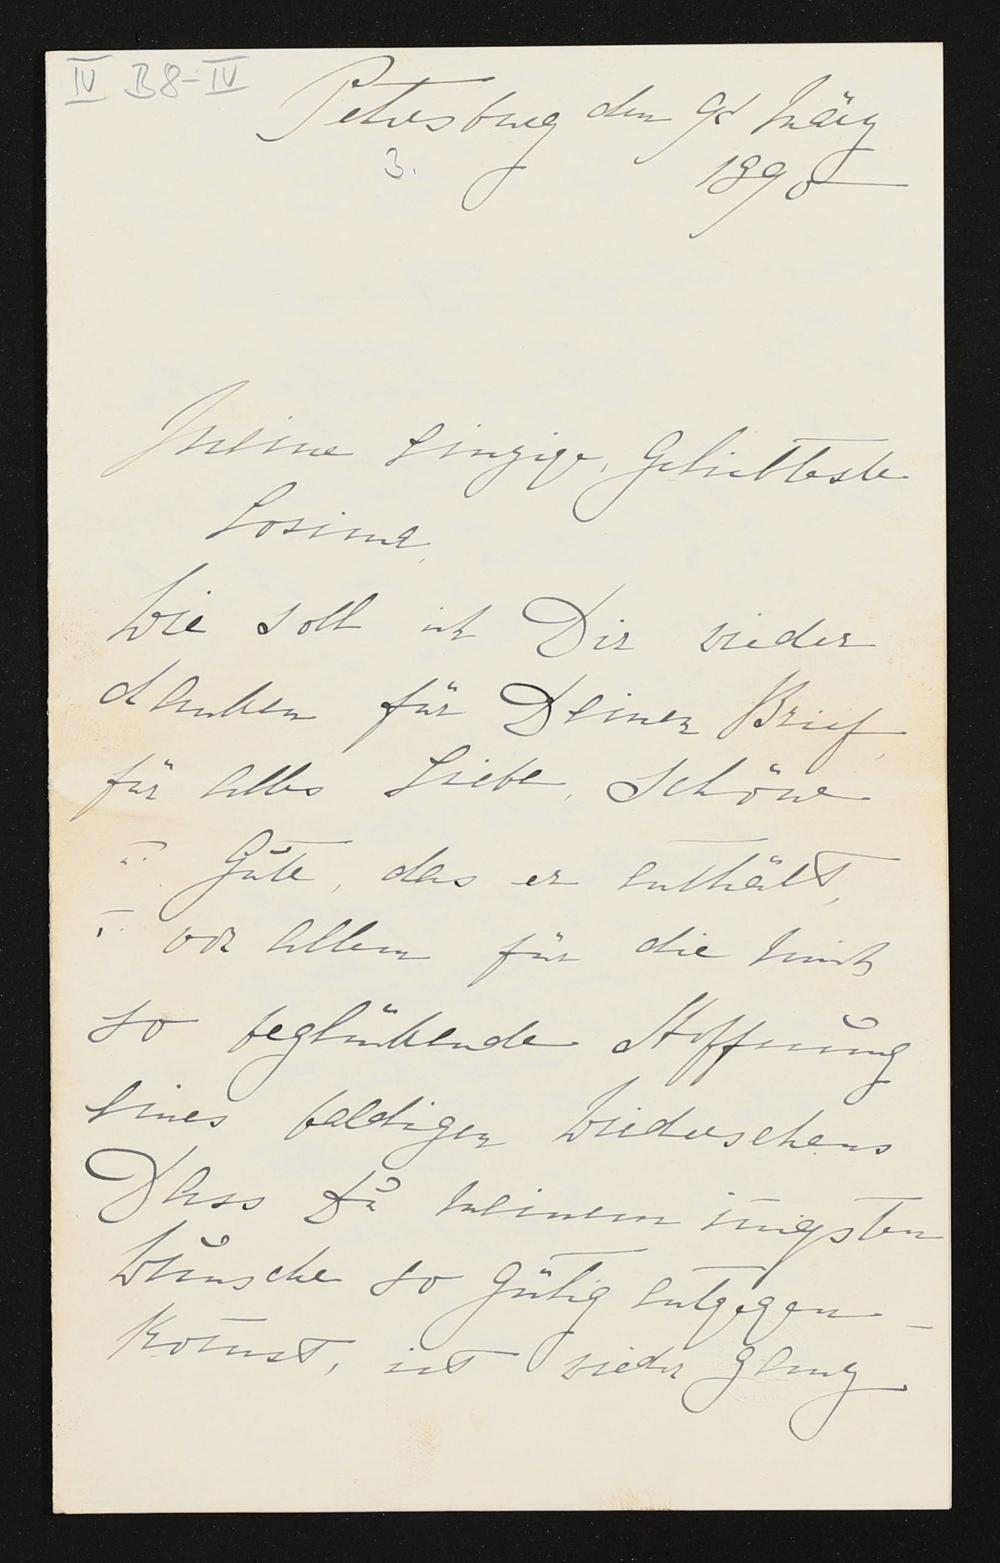 IV B8-IV
Petersburg den 9t März
3.
1890
Meine Einzige, Geliebteste
Cosima,
Wie soll ich Dir wieder
danken für Deinen Brief,
für alles Liebe, Schöne
u. Gute, das er enthält,
u. vor allem für die mich
so beglückende Hoffnung
eines baldigen Wiedersehens
Dass Du meinem iñigsten
Wunsche so gütig entgegen-
kom̄st, ist wieder ganz